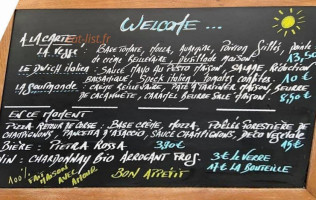 WELCOME...
A LA CARTE
LA VEGGIE : BASE TOMATE, MOZZA, AUBERGINE, POIVRON GRILLÉS, POINTE
DE CRÈME BELLEVAIRE, PERSILLADE MAISON 13,50
LE DUTCH ITALIEN : SAUCE MAYO AU PESTO MAISON, SALADE, RÉDUCTION
BALSAMIQUE, SPECK ITALIEN, TOMATES CONFITES. 10€
LA GOURMANDE : CRÈME BELLEVAIRE, PÂTE À TARTINER MAISON, BEURRE
DE CACAHUÈTE, CARAMEL BEURRE SALÉ MAISON. 8,50€
EN CE MOMENT
PIZZA RETOUR DE CORSE : BASE CRÈME, MOZZA, POÊLÉE FORESTIÈRE DE
CHAMPIGNONS, PANCETTA D'AJACCIO, SAUCE CHAMPIGNONS, DÉCO VÉGÉTALE 15€
BIÈRE : PIETRA ROSSA 3,90€
VIN : CHARDONNAY BIO ARROGANT FROG. 3€ LE VERRE
17€ LA BOUTEILLE
100% FAIT MAISON AVEC AMOUR
BON APPÉTIT